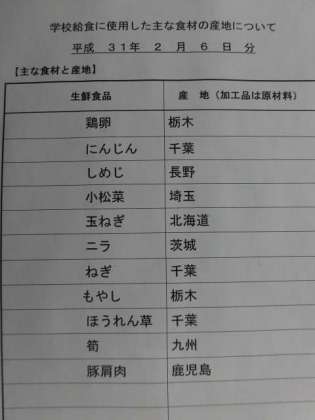 学校給食に使用した主な食材の産地について
平成 31年 2 月 6 日 分
【主な食材と産地】
生鮮食品 産 地（加工品は原材料）
鶏卵 栃木
にんじん 千葉
しめじ 長野
小松菜 埼玉
玉ねぎ 北海道
ニラ 茨城
ねぎ 千葉
もやし 栃木
ほうれん草 千葉
筍 九州
豚肩肉 鹿児島